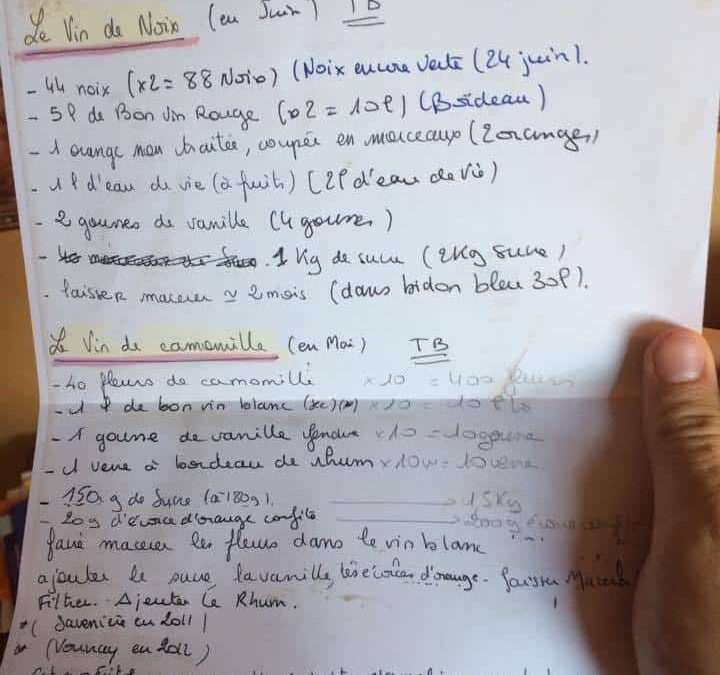 Le Vin de Noix (en Juin) TB
- 44 noix (x2 = 88 Noix) (Noix encore verte (24 juin).
- 5l de Bon Vin Rouge (x2 = 10l) (Bordeau)
- 1 orange non traitée, coupée en morceaux (2 oranges)
- 1l d'eau de vie (à fruits) (2l d'eau de vie)
- 2 gousses de vanille (4 gousses)
- 1 Kg de sucre (2Kg sucre)
- laisser macerer ≃ 2 mois (dans bidon bleu 30l).
Le Vin de camomille (en Mai) TB
- 40 fleurs de camomille x10 = 400 fleurs
- 1 l de bon vin blanc (sec) (*) x10 = 10 l
- 1 gousse de vanille fendue x10 = 10 gousse
- 1 verre à bordeau de rhum x10 = 10 verre
- 150 g de sucre (à 180g). 1,5Kg
- 20g d'écorce d'orange confite 200g écorce confite
faire macerer les fleurs dans le vin blanc
ajouter le sucre, la vanille, les écorces d'orange. laisser Macerer
Filtrer. Ajouter le Rhum.
*( Savenière en 2011 )
* (Vouvray en 2012)